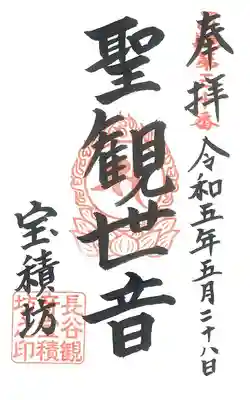 奉拝
令和五年五月二十八日
聖観世音
宝積坊
長谷観
音積
印